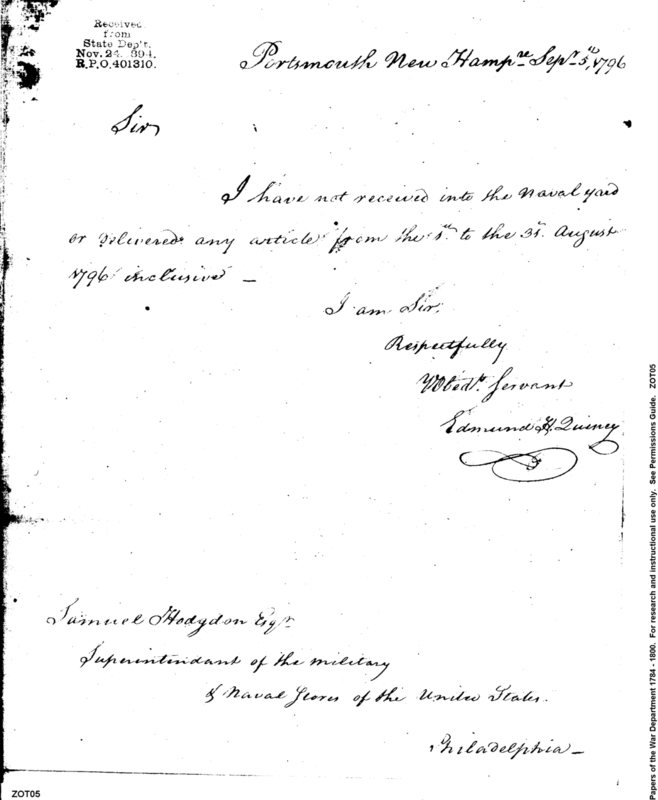 Received
from
State Dep't.
Nov. 24. 894.
R.P.O. 401310.
Portsmouth New Hampre Sepr 5th, 1796
Sir
I have not received into the Naval yard
or Delivered any article from the 1st to the 31st August
1796 inclusive —
I am Sir,
Respectfully
YObedt Servant
Edmund H. Quincy
Samuel Hodgdon Esqr
Superintendant of the military
& Naval Stores of the United States.
Philadelphia —
ZOT05
Papers of the War Department 1784 - 1800. For research and instructional use only. See Permissions Guide. ZOT05